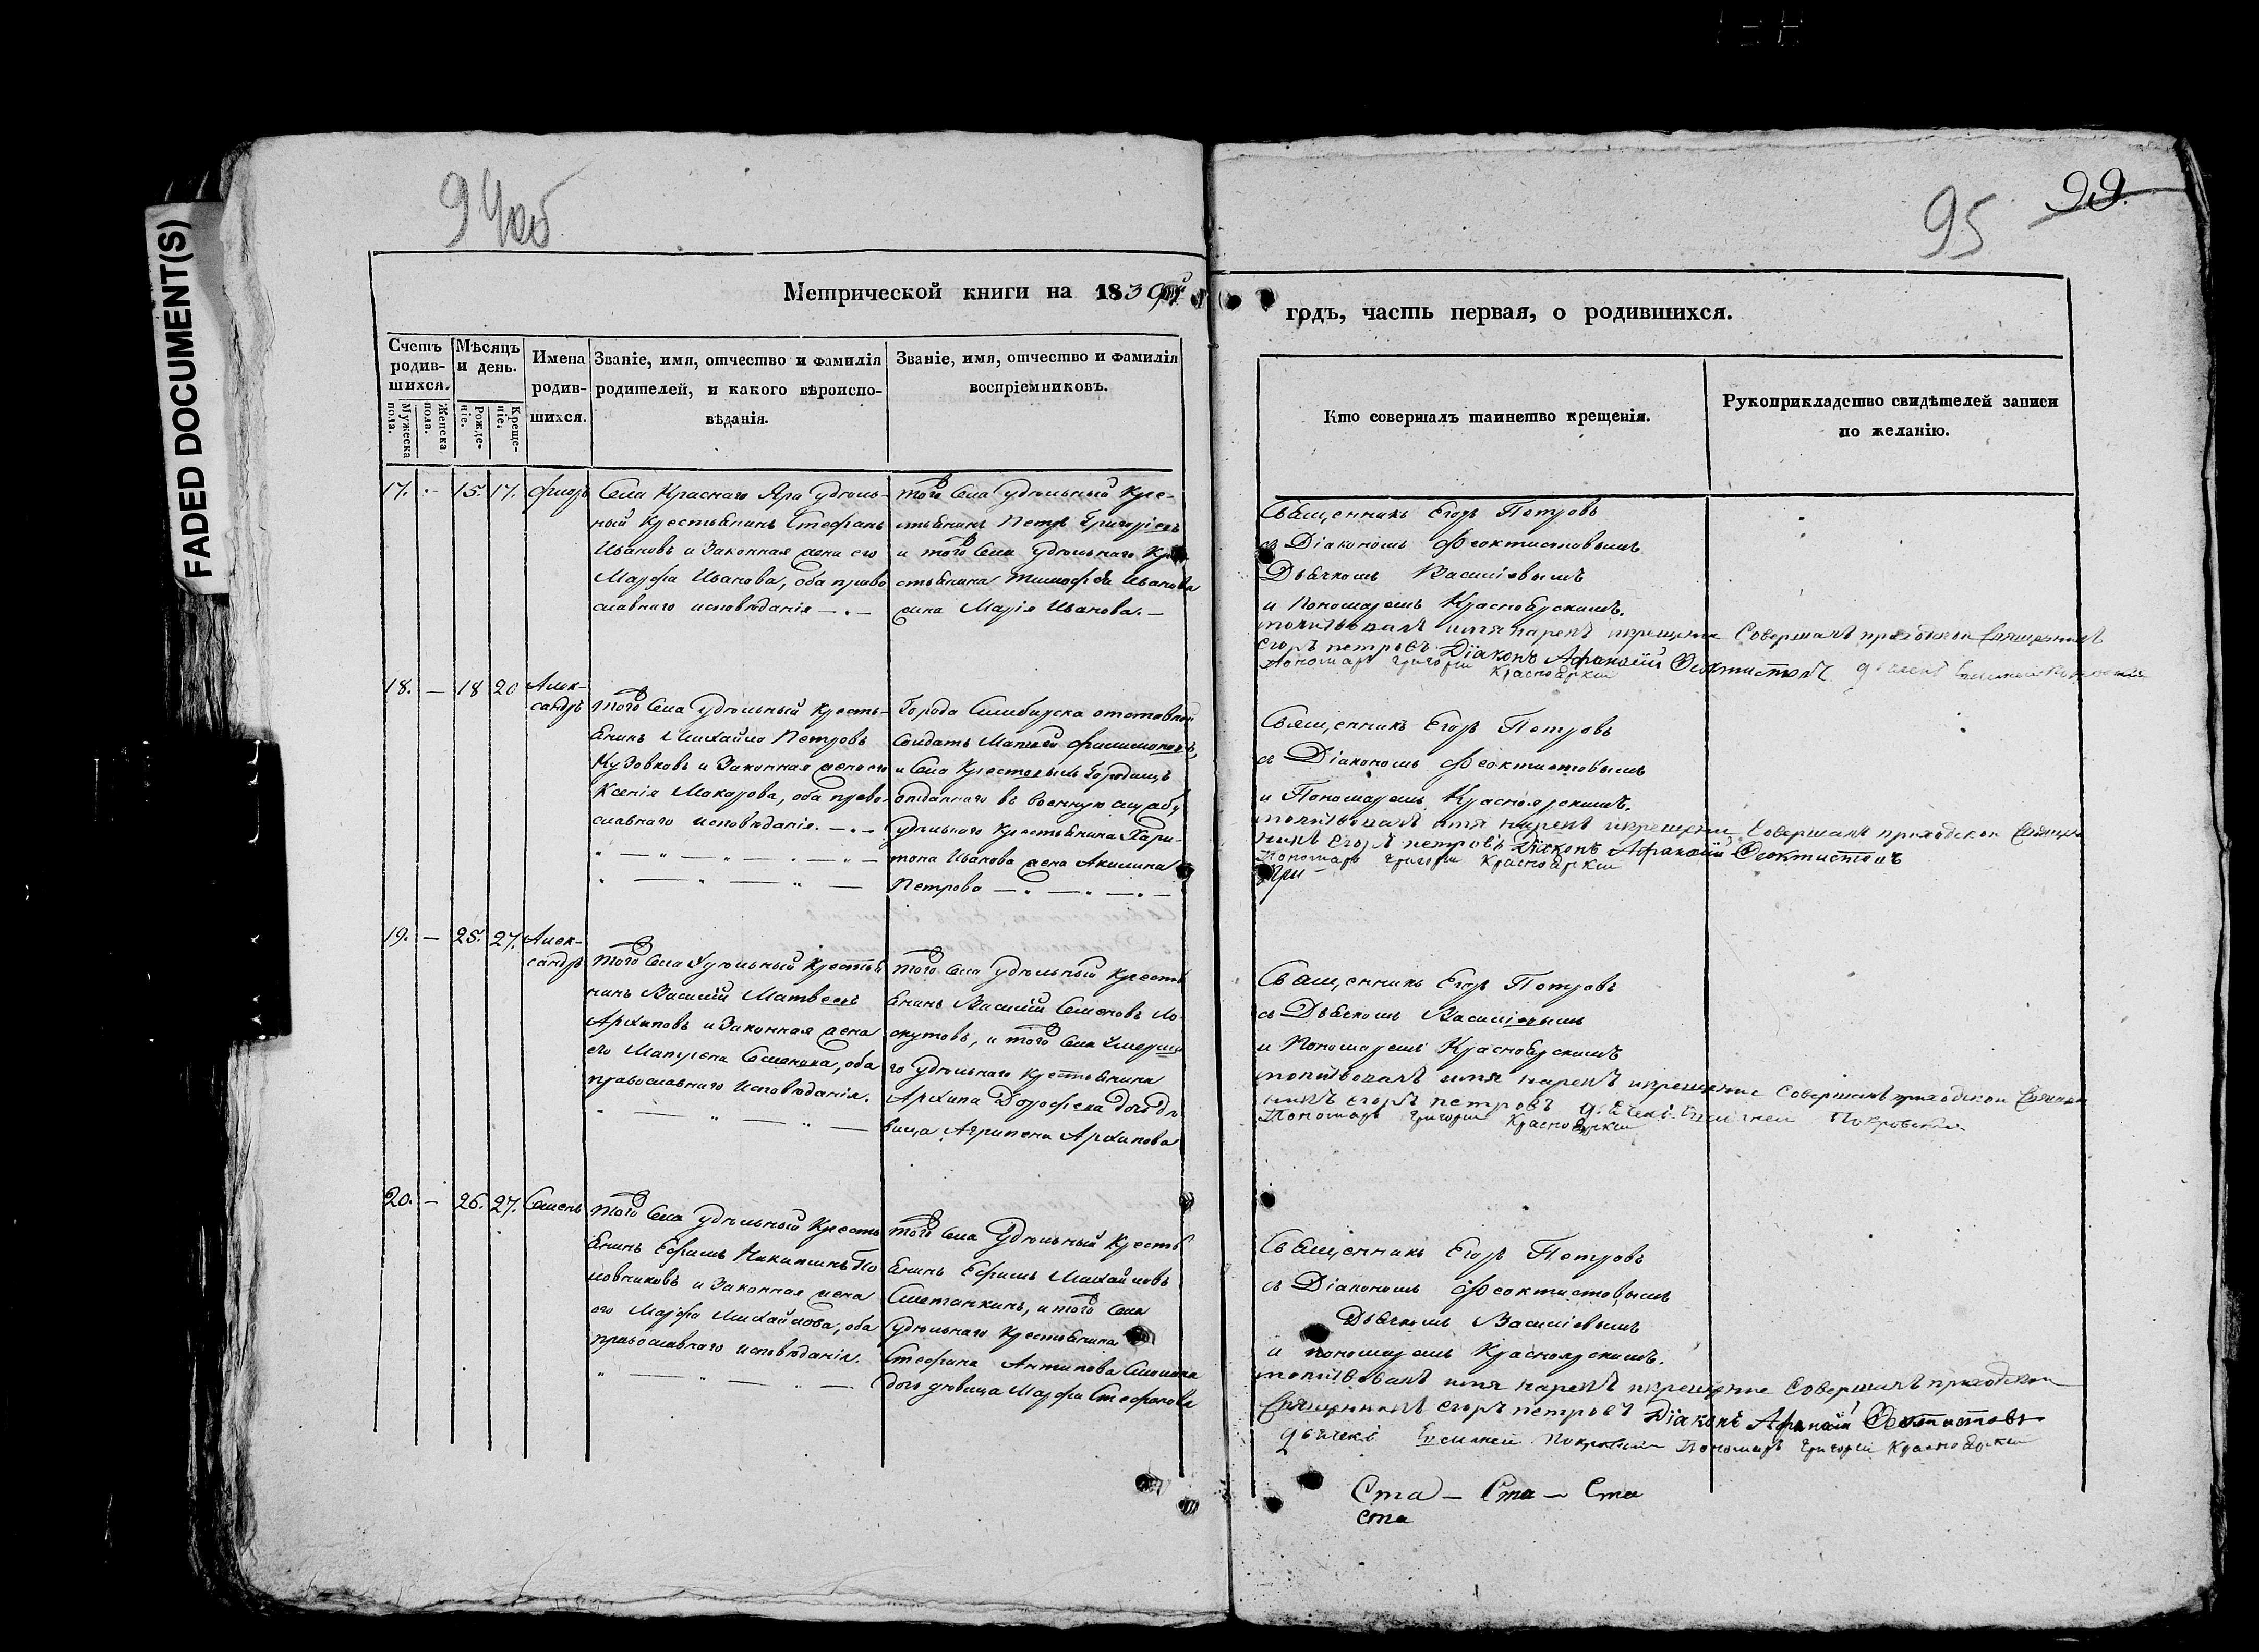 FADED DOCUMENT(S)
94об
95
99.
Метрической книги на 1839й
годъ, часть первая, о родившихся.
Счетъ родившихся.
Мужеска пола.
Женска пола.
Мѣсяцъ и день.
Рожденіе.
Крещеніе.
Имена родившихся.
Званіе, имя, отчество и фамилія
родителей, и какого вѣроиспо-
вѣданія.
Званіе, имя, отчество и фамилія
воспріемниковъ.
Кто совершалъ таинство крещенія.
Рукоприкладство свидѣтелей записи
по желанію.
17. - 15. 17.
Села Краснаго Яра удѣль-
ный крестьянинъ Стефанъ
Ивановъ и законная жена его
Марфа Иванова, оба право
славнаго исповѣданія
того села удѣльный кре-
стьянинъ Петръ Григорьевъ
и того села удѣльнаго кре
стьянина Тимофѣя Иванова
жена Марія Иванова.
Священникъ Егоръ Петровъ
съ Діакономъ Феоктистовымъ
Дьячкомъ Василіевымъ
и Пономаремъ Красноярскимъ.
молитвовалъ имя нарекъ и крещение Совершалъ приходской священникъ
егоръ петровъ Діаконъ Афанасій Феоктистовъ
Пономарь Григорій Красноярский
18. - 18 20 Алек-
сандръ
того села удѣльный кресть-
янинъ Михайло Петровъ
и законная жена его
Ксенія Макарова, оба право-
славнаго исповѣданія.
Города Симбирска отставной
солдатъ Матвей Филимоновъ,
и села Крестовыхъ Городищъ
отданнаго въ военную службу
удѣльнаго крестьянина Хари-
тона Иванова жена Акилина
Петрова
Священникъ Егоръ Петровъ
съ Діакономъ Феоктистовымъ
и Пономаремъ Красноярскимъ.
молитвовалъ имя нарекъ и крещение Совершалъ приходской священ
никъ Егоръ петровъ Діаконъ Афанасій Феоктистовъ
Пономарь Григорій Красноярский
19. - 25. 27. Алек-
сандръ
того села удѣльный крестья
нинъ Василій Матвеевъ
Архиповъ и законная жена
его Матрена Семенова, оба
православнаго исповѣданія.
того села удѣльный кресть
янинъ Василій Семеновъ Ло-
скутовъ, и того села умерша
го удѣльнаго крестьянина
Архипа Дорофеева дочь дѣ
вица Агрипена Архипова
Священникъ Егоръ Петровъ
съ Дьячкомъ Василіевымъ
и Пономаремъ Красноярскимъ
молитвовалъ имя нарекъ и крещение Совершалъ приходской священ
никъ егоръ петровъ Покровский
Пономарь Григорій Красноярский
20. - 26. 27. Семенъ
того села удѣльный кресть
янинъ Ефимъ Никитинъ По
ловниковъ и законная жена
его Марфа Михайлова, оба
православнаго исповѣданія.
того села удѣльный кресть
янинъ Ефимъ Михайловъ
Сметанкинъ, и того села
удѣльнаго крестьянина
Стефана Антипова
дочь дѣвица Марфа Стефанова
Священникъ Егоръ Петровъ
съ Діакономъ Феоктистовымъ
Дьячкомъ Василіевымъ
и пономаремъ Красноярскимъ.
молитвовалъ имя нарекъ и крещение Совершалъ приходской
Священникъ егоръ петровъ Діаконъ Афанасій Феоктистовъ
Покровский Пономарь Григорій Красноярский
Ста — Ста — Ста
Ста